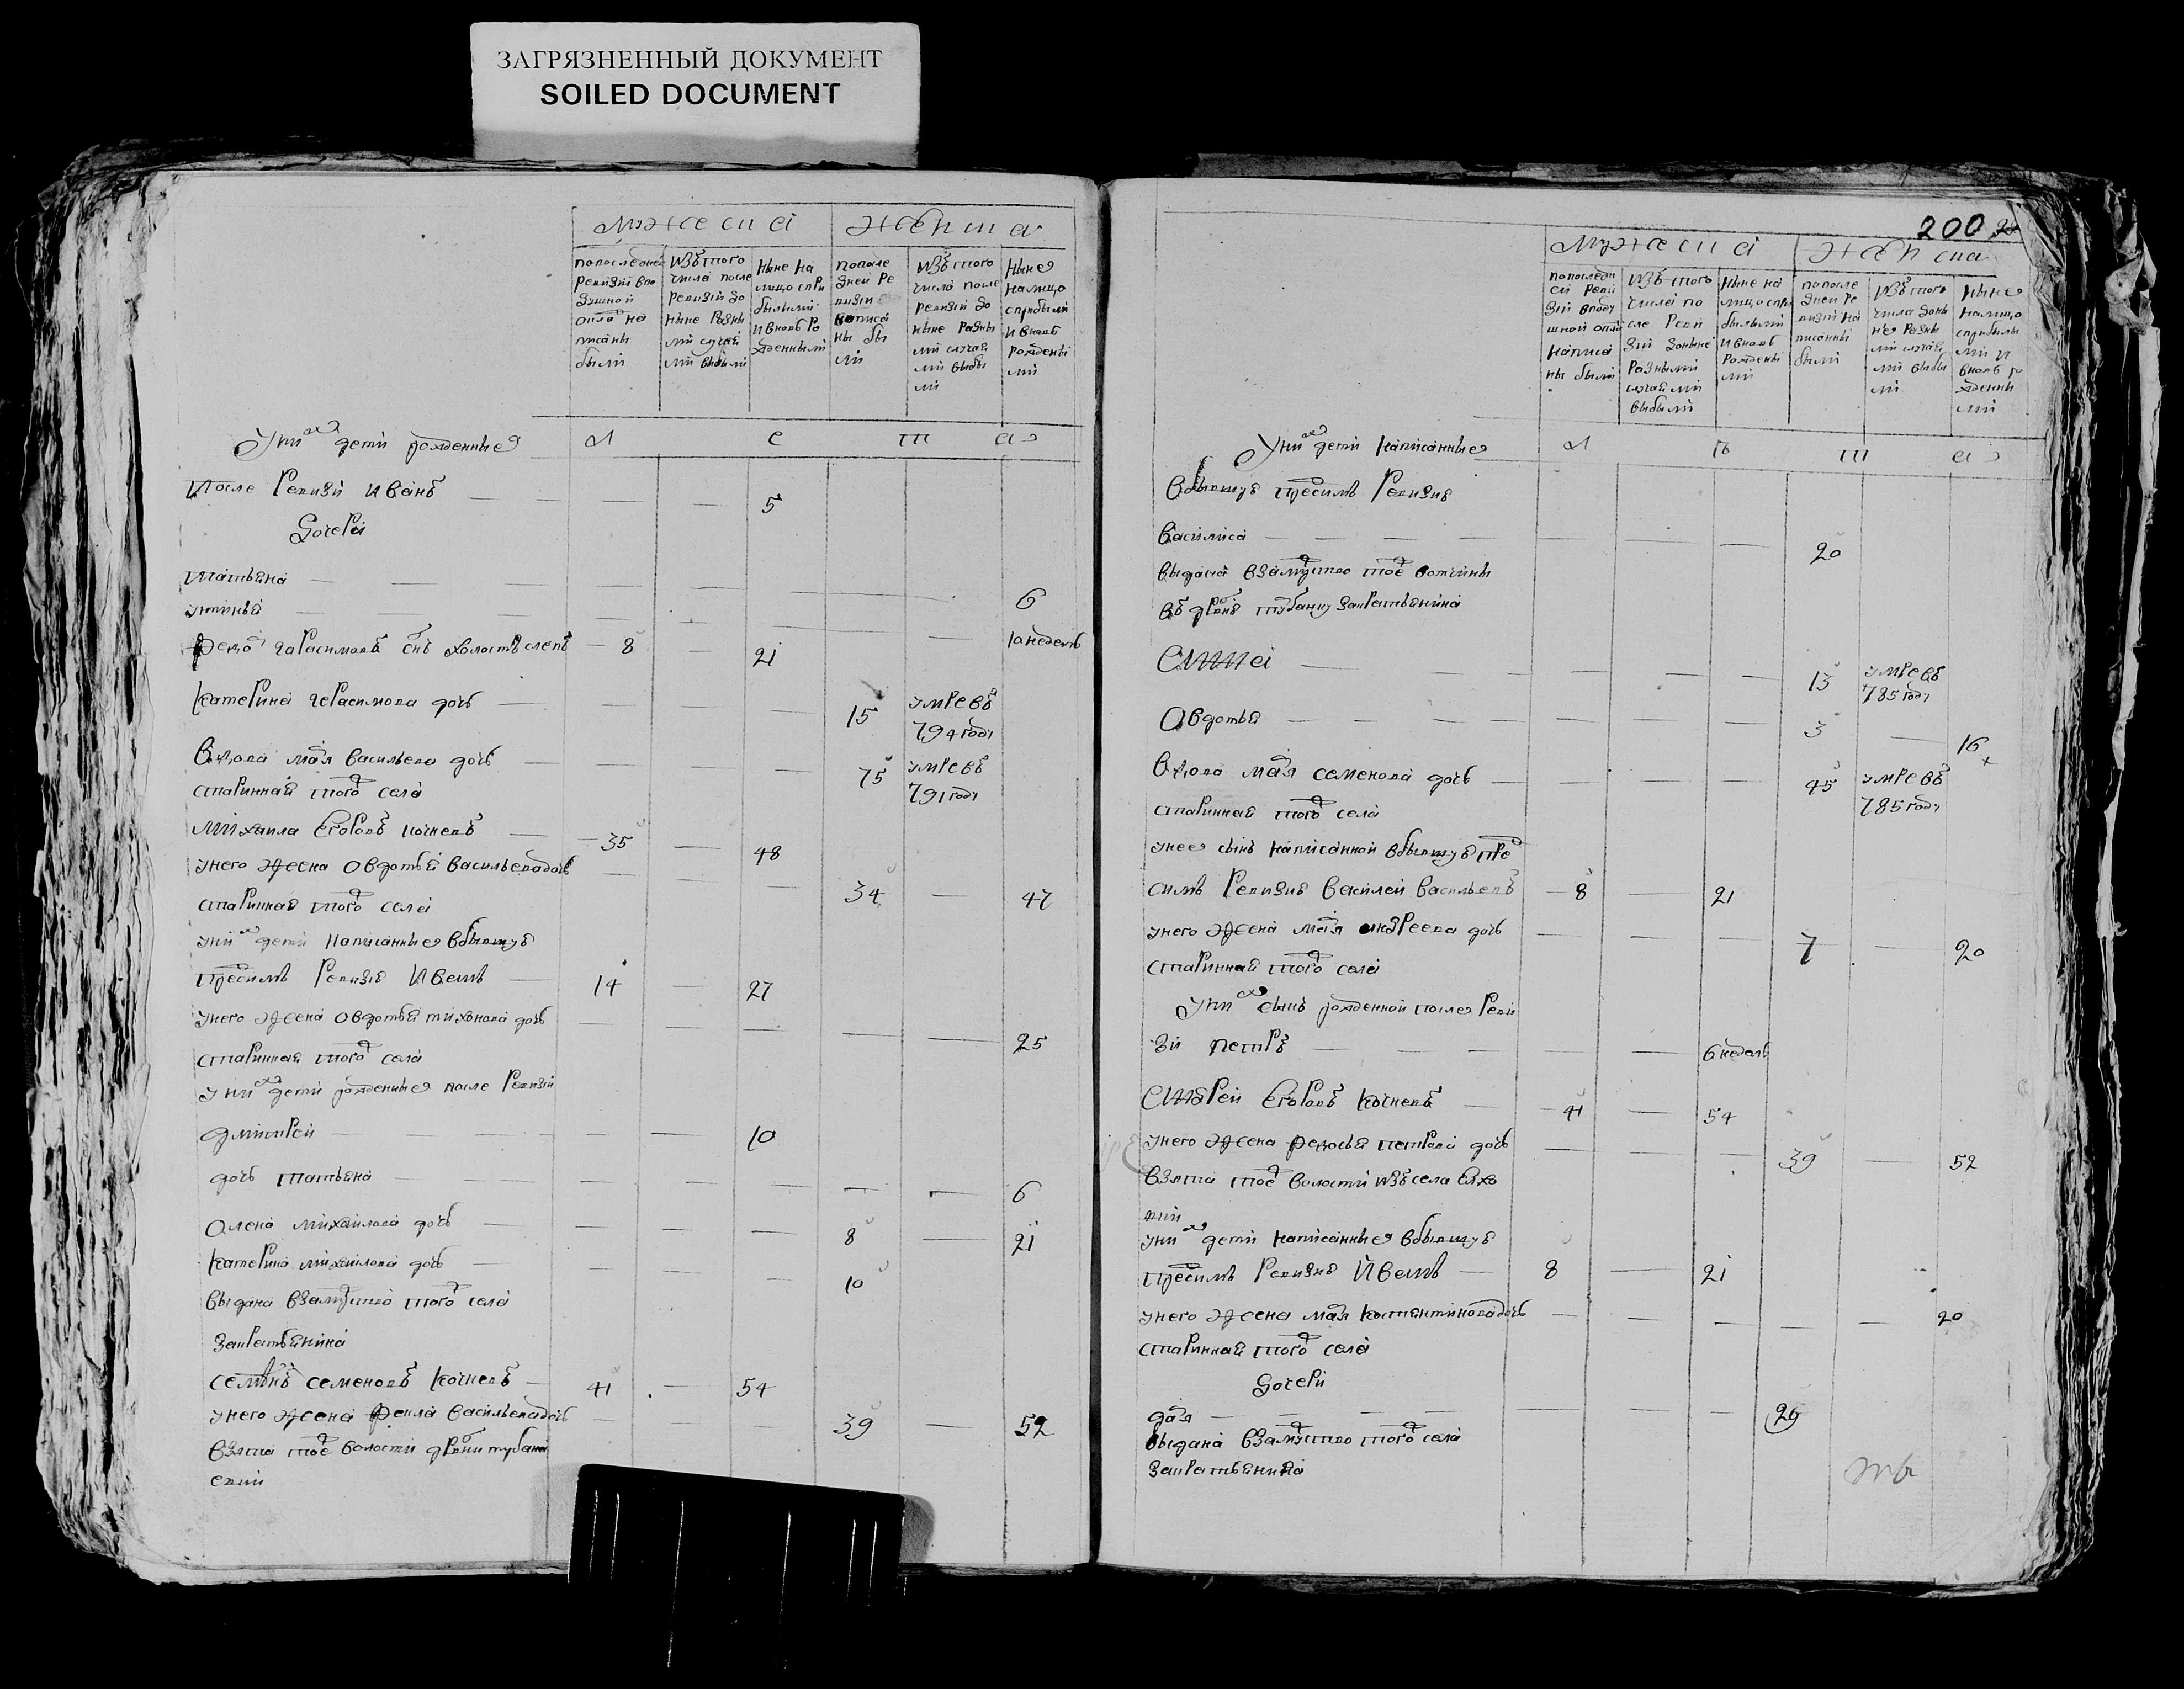 ЗАГРЯЗНЕННЫЙ ДОКУМЕНТ
SOILED DOCUMENT
мужеска
женска
по последней ревизии в подушной оклад написаны были
изъ того числа после ревизии до ныне разными случаями выбыли
ныне на лицо с прибылыми и вновь рожденными
по последней ревизии написаны были
изъ того числа после ревизии до ныне разными случаями выбыли
ныне налицо с прибылыми и вновь рожденными
л е т а
У них дети рожденные
после ревизи иванъ 5
Дочери
татьяна 6
устинья 10 недель
федоръ гарасимовъ снъ холостъ слепъ 8 21
катерина герасимова дочь 15 умре въ 794 году
вдова марья васильева дочь 75 умре въ 791 году
старинная того села
михаила егоровъ кочневъ 35 48
у него жена овдотья васильева дочь 34 47
старинная того села
у них дети написанные в бывшую
пред симъ ревизию иванъ 14 27
у него жена овдотья тихонова дочь 25
старинная того села
у них дети рожденные после ревизии
дмитрей 10
дочь татьяна 6
олена михайлова дочь 8 21
катерина михайлова дочь 10
выдана в замужство того села
за крестьянина
семенъ семеновъ кочневъ 41 54
у него жена фекла васильева дочь 39 52
взята тое волости древни губана
200
мужеска
женска
по последней ревизии в подушной оклад написаны были
изъ того числа после ревизии до ныне разными случаями выбыли
ныне на лицо с прибылыми и вновь рожденными
по последней ревизии написанны были
изъ того числа до ныне разными случаями выбыли
ныне налицо с прибылыми и вновь рожденными
л ѣ т а
У них дети написанные
в бывшую пред симъ ревизию
василиса 20
выдана в замужство тое вотчины
въ древню губану за крестьянина
анна 13 умре въ 785 году
овдотья 3 16
вдова марья семенова дочь 45 умре въ 785 году
старинная того села
у нее сынъ написанной в бывшую пред
симъ ревизию василей васильевъ 8 21
у него жена марья андреева дочь 7 20
старинная того села
У них сынъ рожденной после реви
зи петръ 6 недель
андрей егоровъ кочневъ 41 54
у него жена федосья петрова дочь 39 52
взята тое волости изъ села
у них дети написанные в бывшую
пред симъ ревизию иванъ 8 21
у него жена марья костянтинова дочь 20
старинная того села
Дочери
дарья 20
выдана в замужство того села
за крестьянина